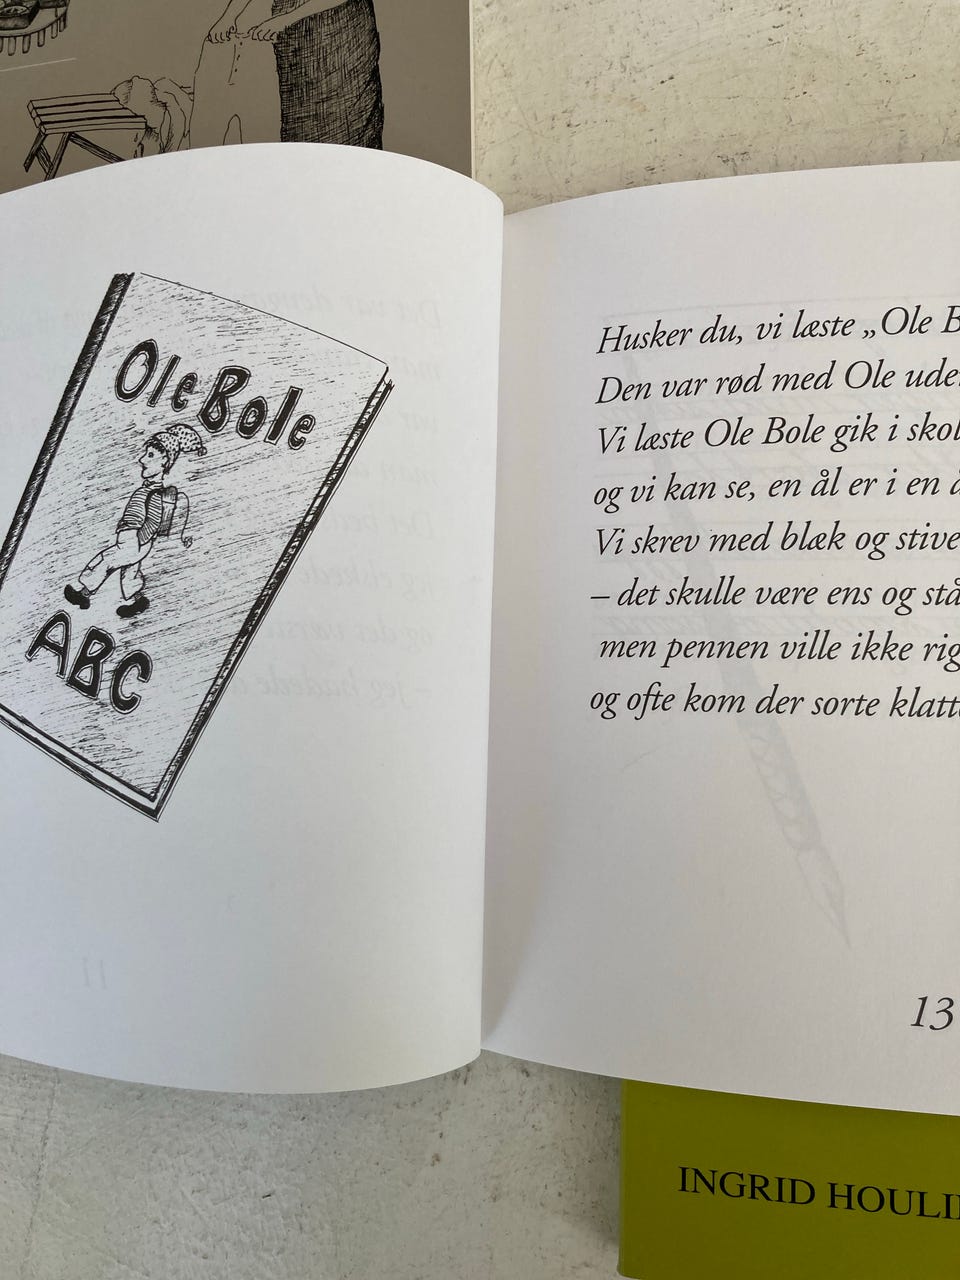 Ole Bole
ABC
Husker du, vi læste „Ole B
Den var rød med Ole ude
Vi læste Ole Bole gik i skol
og vi kan se, en ål er i en å
Vi skrev med blæk og stive
– det skulle være ens og stå
men pennen ville ikke rig
og ofte kom der sorte klatt
13
INGRID HOULI